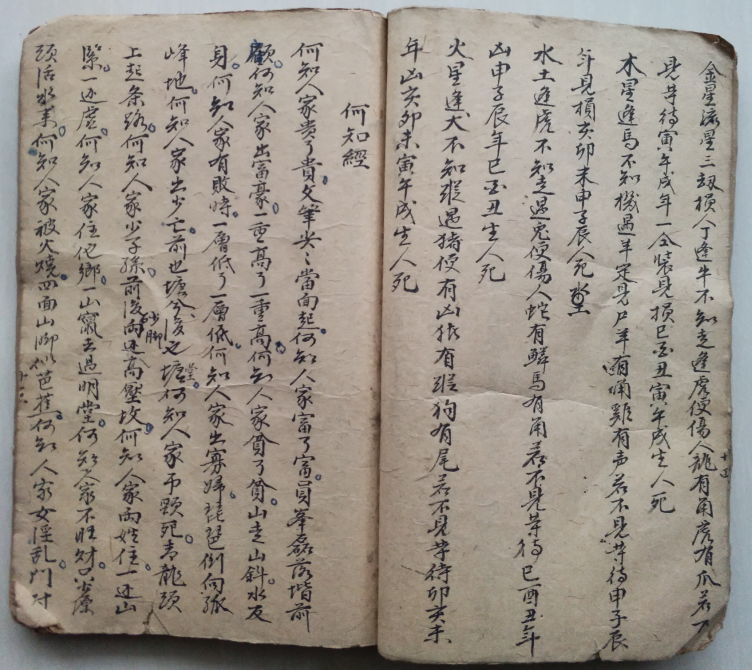 金星流星三刼損人丁逢牛不知走逢虎便傷人龍有角虎有爪若不
見芋待寅午戌年一全裝見損巳酉丑寅午戌生人死
木星逢馬不知機過羊定見尸羊有角雞有声若不見芋待申子辰
年見損亥卯未申子辰人死
水土逢虎不知走遇兎便傷人蛇有鱗馬有角若不見芋待巳酉丑年
凶申子辰年巳酉丑生人死
火星逢犬不知蹤遇猪便有凶猪有蹤狗有尾若不見芋待卯亥未
年凶亥卯未寅午戌生人死
十四
何知經
何知人家貴了貴文筆尖々當面起何知人家富了富員峯磊落堦前
顧何知人家出富豪一重高了一重高何知人家貧了貧山走山斜水反
身何知人家有敗時一層低了一層低何知人家出寡婦琵琶倒向孤
峰地何知人家出少亡前也塘兮後也塘何知人家吊頸死青龍頭
上起条路何知人家少子孫前後兩边高壓坟何知人家兩姓住一边山
一边虗何知人家住他鄉一山竄去過明堂何知人家不旺財只少源
頭活水來何知人家被火燒四面山脚似芭蕉何知人家女淫乱門对
砂脚
堂
十六